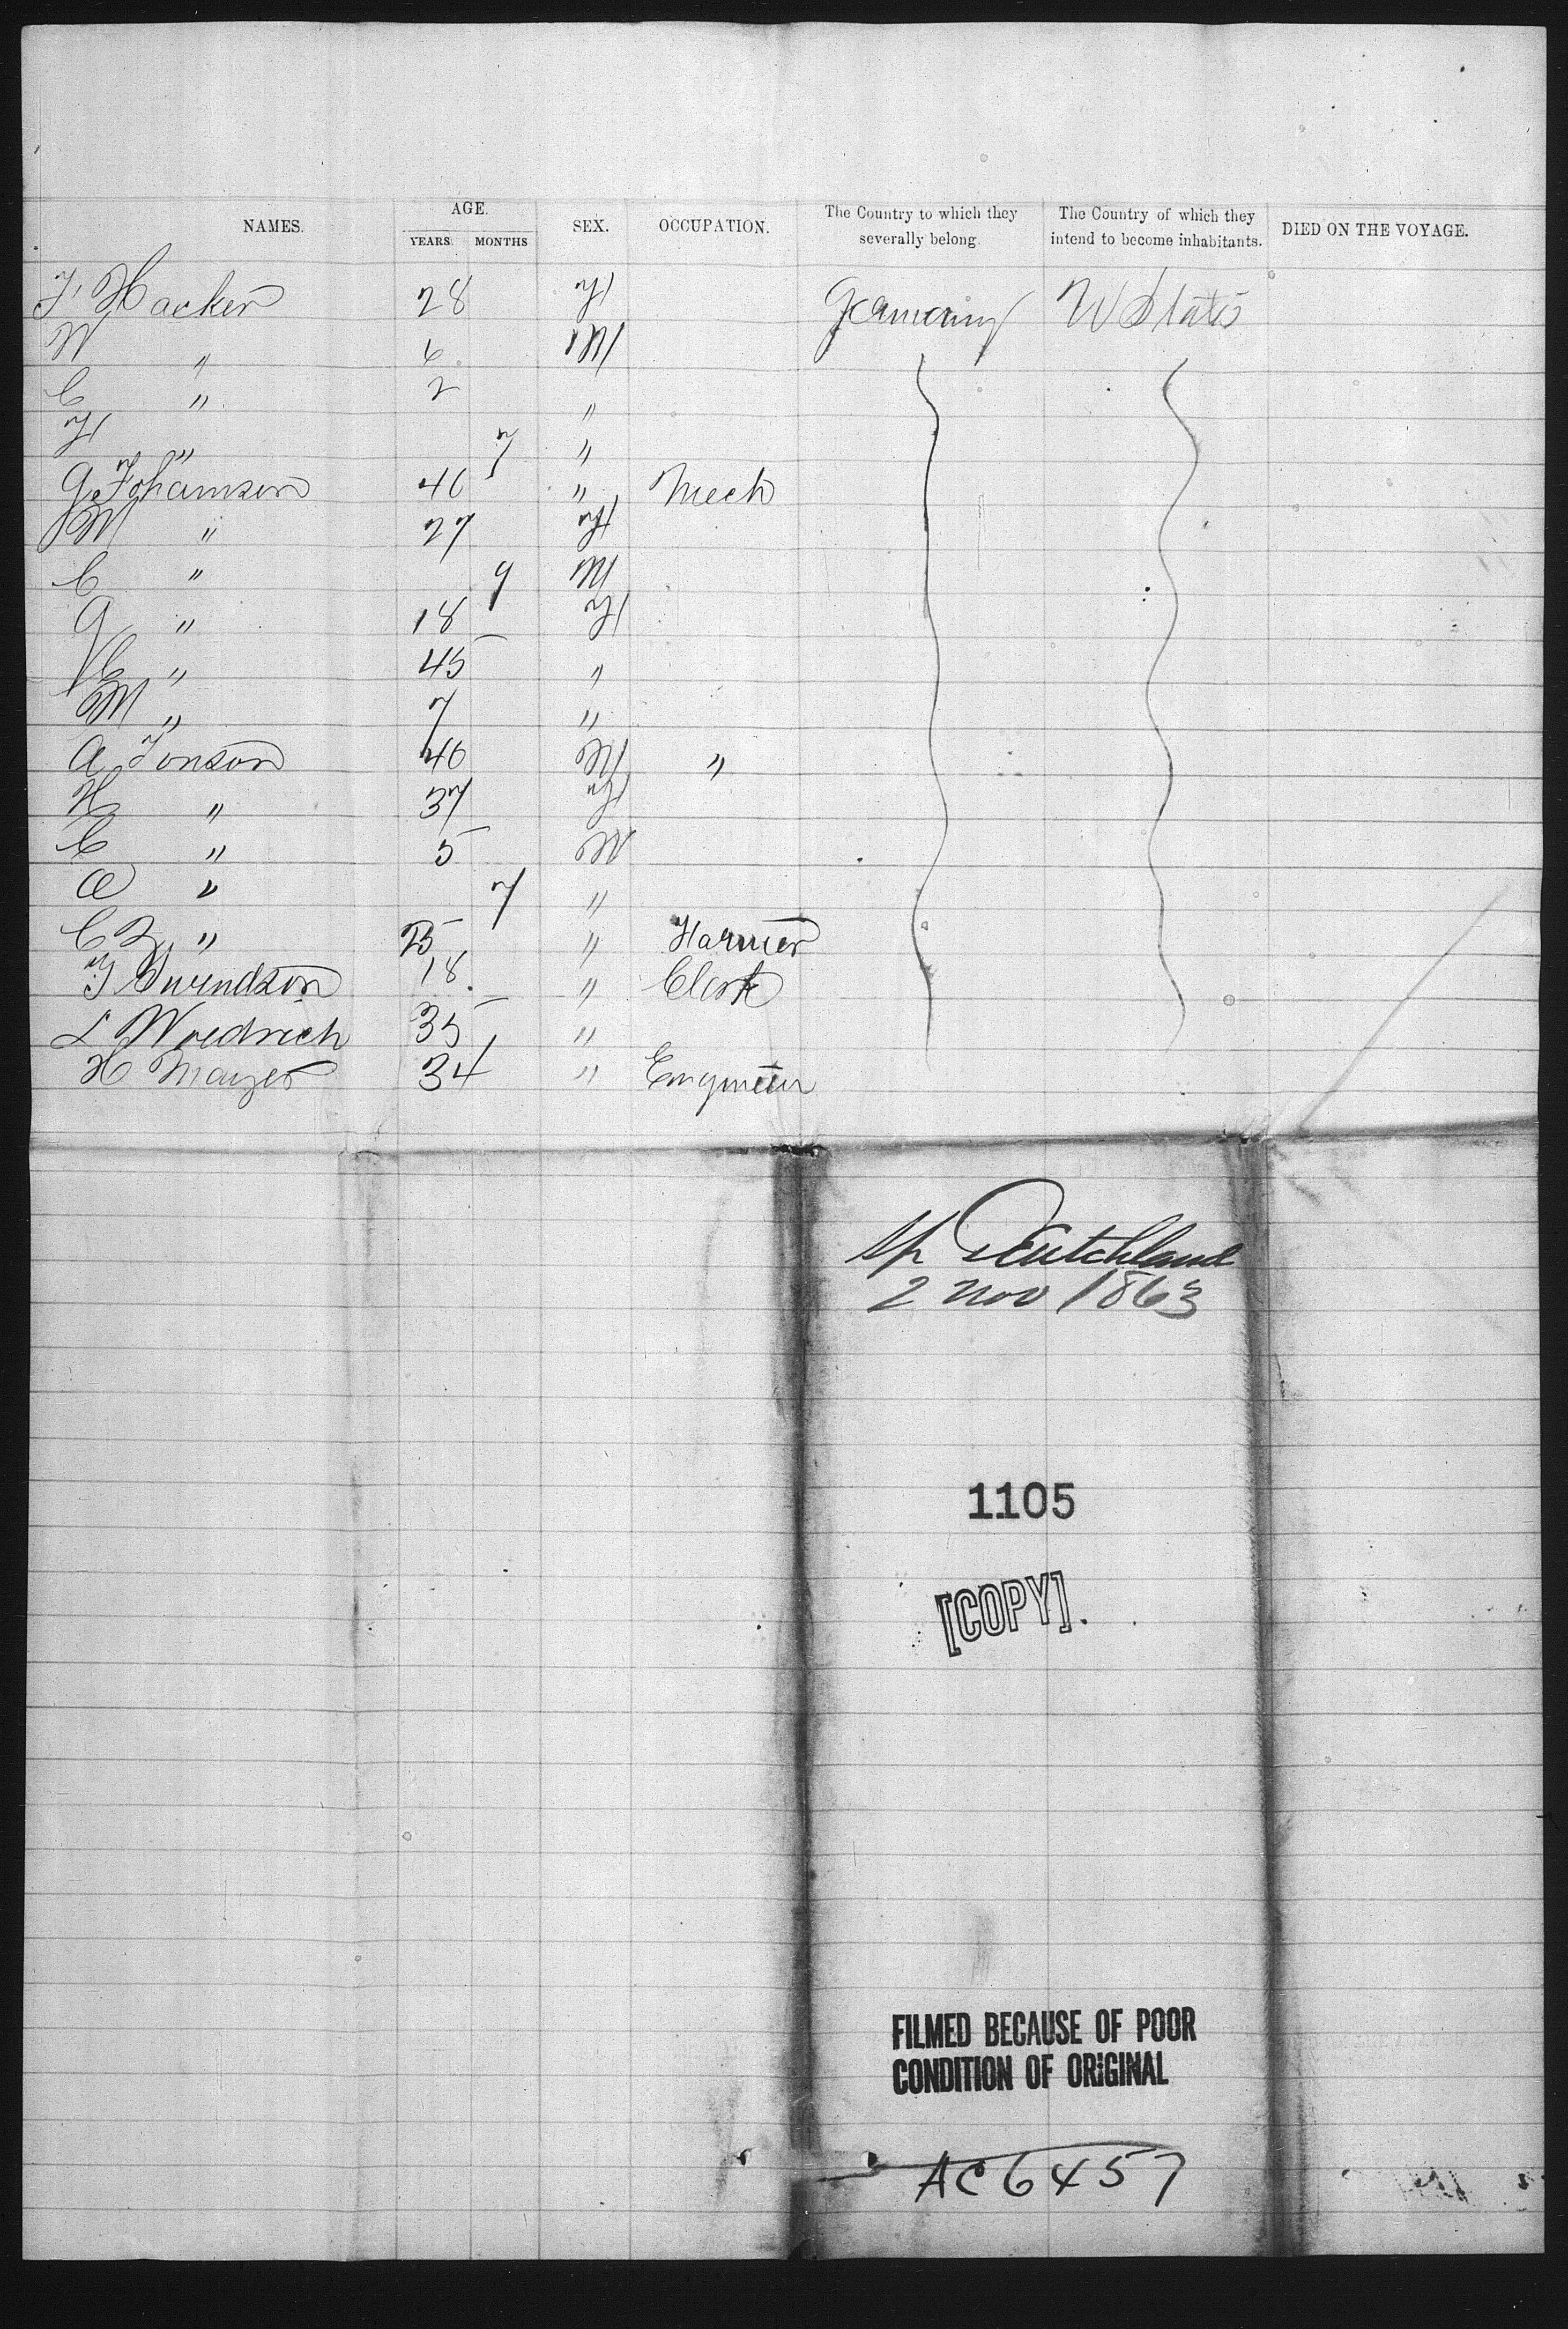 NAMES. AGE. YEARS. MONTHS SEX. OCCUPATION. The Country to which they severally belong. The Country of which they intend to become inhabitants. DIED ON THE VOYAGE.
F Hacker 28 F Germany U States
W " 6 M
C " 2 "
F " 7 "
G Johannsen 46 " Mech
M " 27 F
C " 9 M
G " 18 F
C " 45 "
M " 7 "
A Jonson 40 M "
H " 37 F
C " 5 M
A " 7 "
C " 25 " Farmer
J Swendson 18 " Clerk
L Woedrich 35 "
H Mayer 34 " Engineer
Sp Deutchland
2 Nov 1863
1105
[COPY].
FILMED BECAUSE OF POOR
CONDITION OF ORIGINAL
AC 6457